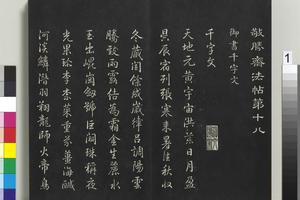 敬勝齋法帖第十八
御書千字文
千字文
天地元黃宇宙洪荒日月盈
昃辰宿列張寒來暑往秋收
冬藏閏餘成歲律呂調陽雲
騰致雨露結為霜金生麗水
玉出崐岡劍號巨闕珠稱夜
光果珍李柰菜重芥薑海鹹
河淡鱗潛羽翔龍師火帝鳥